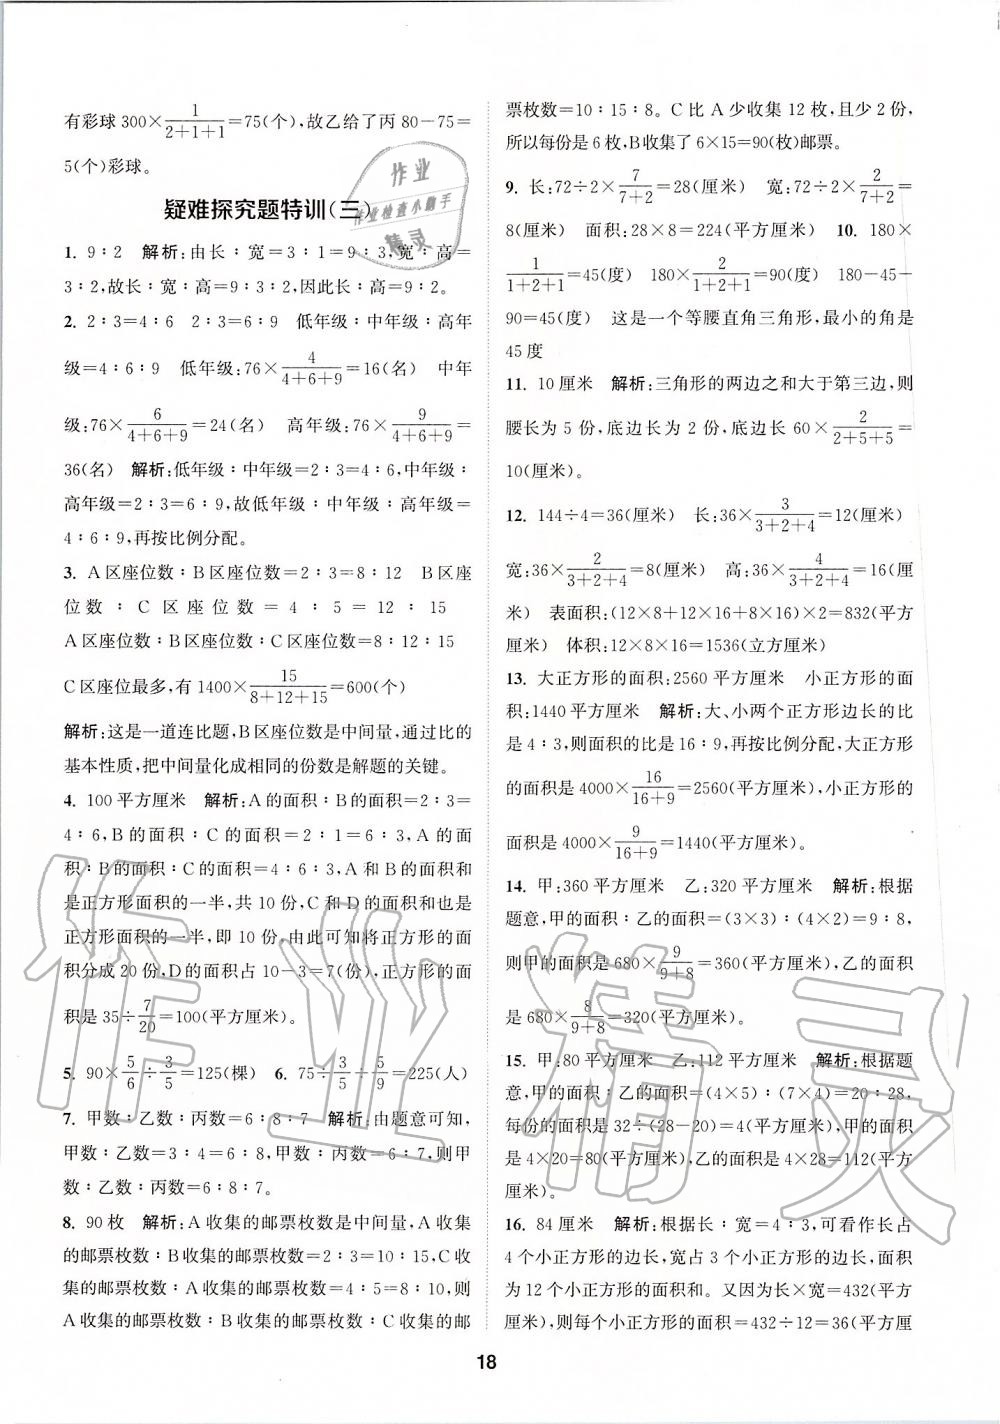 有彩球300×1/(2+1+1)=75(个),故乙给了丙80-75=
5(个)彩球。
疑难探究题特训(三)
1. 9∶2 解析:由长∶宽=3∶1=9∶3,宽∶高=
3∶2,故长∶宽∶高=9∶3∶2,因此长∶高=9∶2。
2. 2∶3=4∶6 2∶3=6∶9 低年级∶中年级∶高年
级=4∶6∶9 低年级:76×4/(4+6+9)=16(名) 中年
级:76×6/(4+6+9)=24(名) 高年级:76×9/(4+6+9)=
36(名) 解析:低年级∶中年级=2∶3=4∶6,中年级∶
高年级=2∶3=6∶9,故低年级∶中年级∶高年级=
4∶6∶9,再按比例分配。
3. A区座位数∶B区座位数=2∶3=8∶12 B区座
位数∶C区座位数=4∶5=12∶15
A区座位数∶B区座位数∶C区座位数=8∶12∶15
C区座位最多,有1400×15/(8+12+15)=600(个)
解析:这是一道连比题,B区座位数是中间量,通过比的
基本性质,把中间量化成相同的份数是解题的关键。
4. 100平方厘米 解析:A的面积∶B的面积=2∶3=
4∶6,B的面积∶C的面积=2∶1=6∶3,A的面
积∶B的面积∶C的面积=4∶6∶3,A和B的面积和
是正方形面积的一半,共10份,C和D的面积和也是
正方形面积的一半,即10份,由此可知将正方形的面
积分成20份,D的面积占10-3=7(份),正方形的面
积是35÷7/20=100(平方厘米)。
5. 90×5/6÷3/5=125(棵) 6. 75÷3/5÷5/9=225(人)
7. 甲数∶乙数∶丙数=6∶8∶7 解析:由题意可知,
甲数∶乙数=3∶4=6∶8,甲数∶丙数=6∶7,则甲
数∶乙数∶丙数=6∶8∶7。
8. 90枚 解析:A收集的邮票枚数是中间量,A收集
的邮票枚数∶B收集的邮票枚数=2∶3=10∶15,C收
集的邮票枚数∶A收集的邮票枚数=4∶5=8∶10,则
A收集的邮票枚数∶B收集的邮票枚数∶C收集的邮
票枚数=10∶15∶8。C比A少收集12枚,且少2份,
所以每份是6枚,B收集了6×15=90(枚)邮票。
9. 长:72÷2×7/(7+2)=28(厘米) 宽:72÷2×2/(7+2)=
8(厘米) 面积:28×8=224(平方厘米) 10. 180×
1/(1+2+1)=45(度) 180×2/(1+2+1)=90(度) 180-45-
90=45(度) 这是一个等腰直角三角形,最小的角是
45度
11. 10厘米 解析:三角形的两边之和大于第三边,则
腰长为5份,底边长为2份,底边长60×2/(2+5+5)=
10(厘米)。
12. 144÷4=36(厘米) 长:36×3/(3+2+4)=12(厘米)
宽:36×2/(3+2+4)=8(厘米) 高:36×4/(3+2+4)=16(厘
米) 表面积:(12×8+12×16+8×16)×2=832(平方
厘米) 体积:12×8×16=1536(立方厘米)
13. 大正方形的面积:2560平方厘米 小正方形的面
积:1440平方厘米 解析:大、小两个正方形边长的比
是4∶3,则面积的比是16∶9,再按比例分配,大正方形
的面积是4000×16/(16+9)=2560(平方厘米),小正方形的
面积是4000×9/(16+9)=1440(平方厘米)。
14. 甲:360平方厘米 乙:320平方厘米 解析:根据
题意,甲的面积∶乙的面积=(3×3)∶(4×2)=9∶8,
则甲的面积是680×9/(9+8)=360(平方厘米),乙的面积
是680×8/(9+8)=320(平方厘米)。
15. 甲:80平方厘米 乙:112平方厘米 解析:根据题
意,甲的面积∶乙的面积=(4×5)∶(7×4)=20∶28,
每份的面积是32÷(28-20)=4(平方厘米),甲的面积
是4×20=80(平方厘米),乙的面积是4×28=112(平方
厘米)。
16. 84厘米 解析:根据长∶宽=4∶3,可看作长占
4个小正方形的边长,宽占3个小正方形的边长,面积
为12个小正方形的面积和。又因为长×宽=432(平方
厘米),则每个小正方形的面积=432÷12=36(平方厘
18
作业
作业检查小助手
精灵
作业精灵